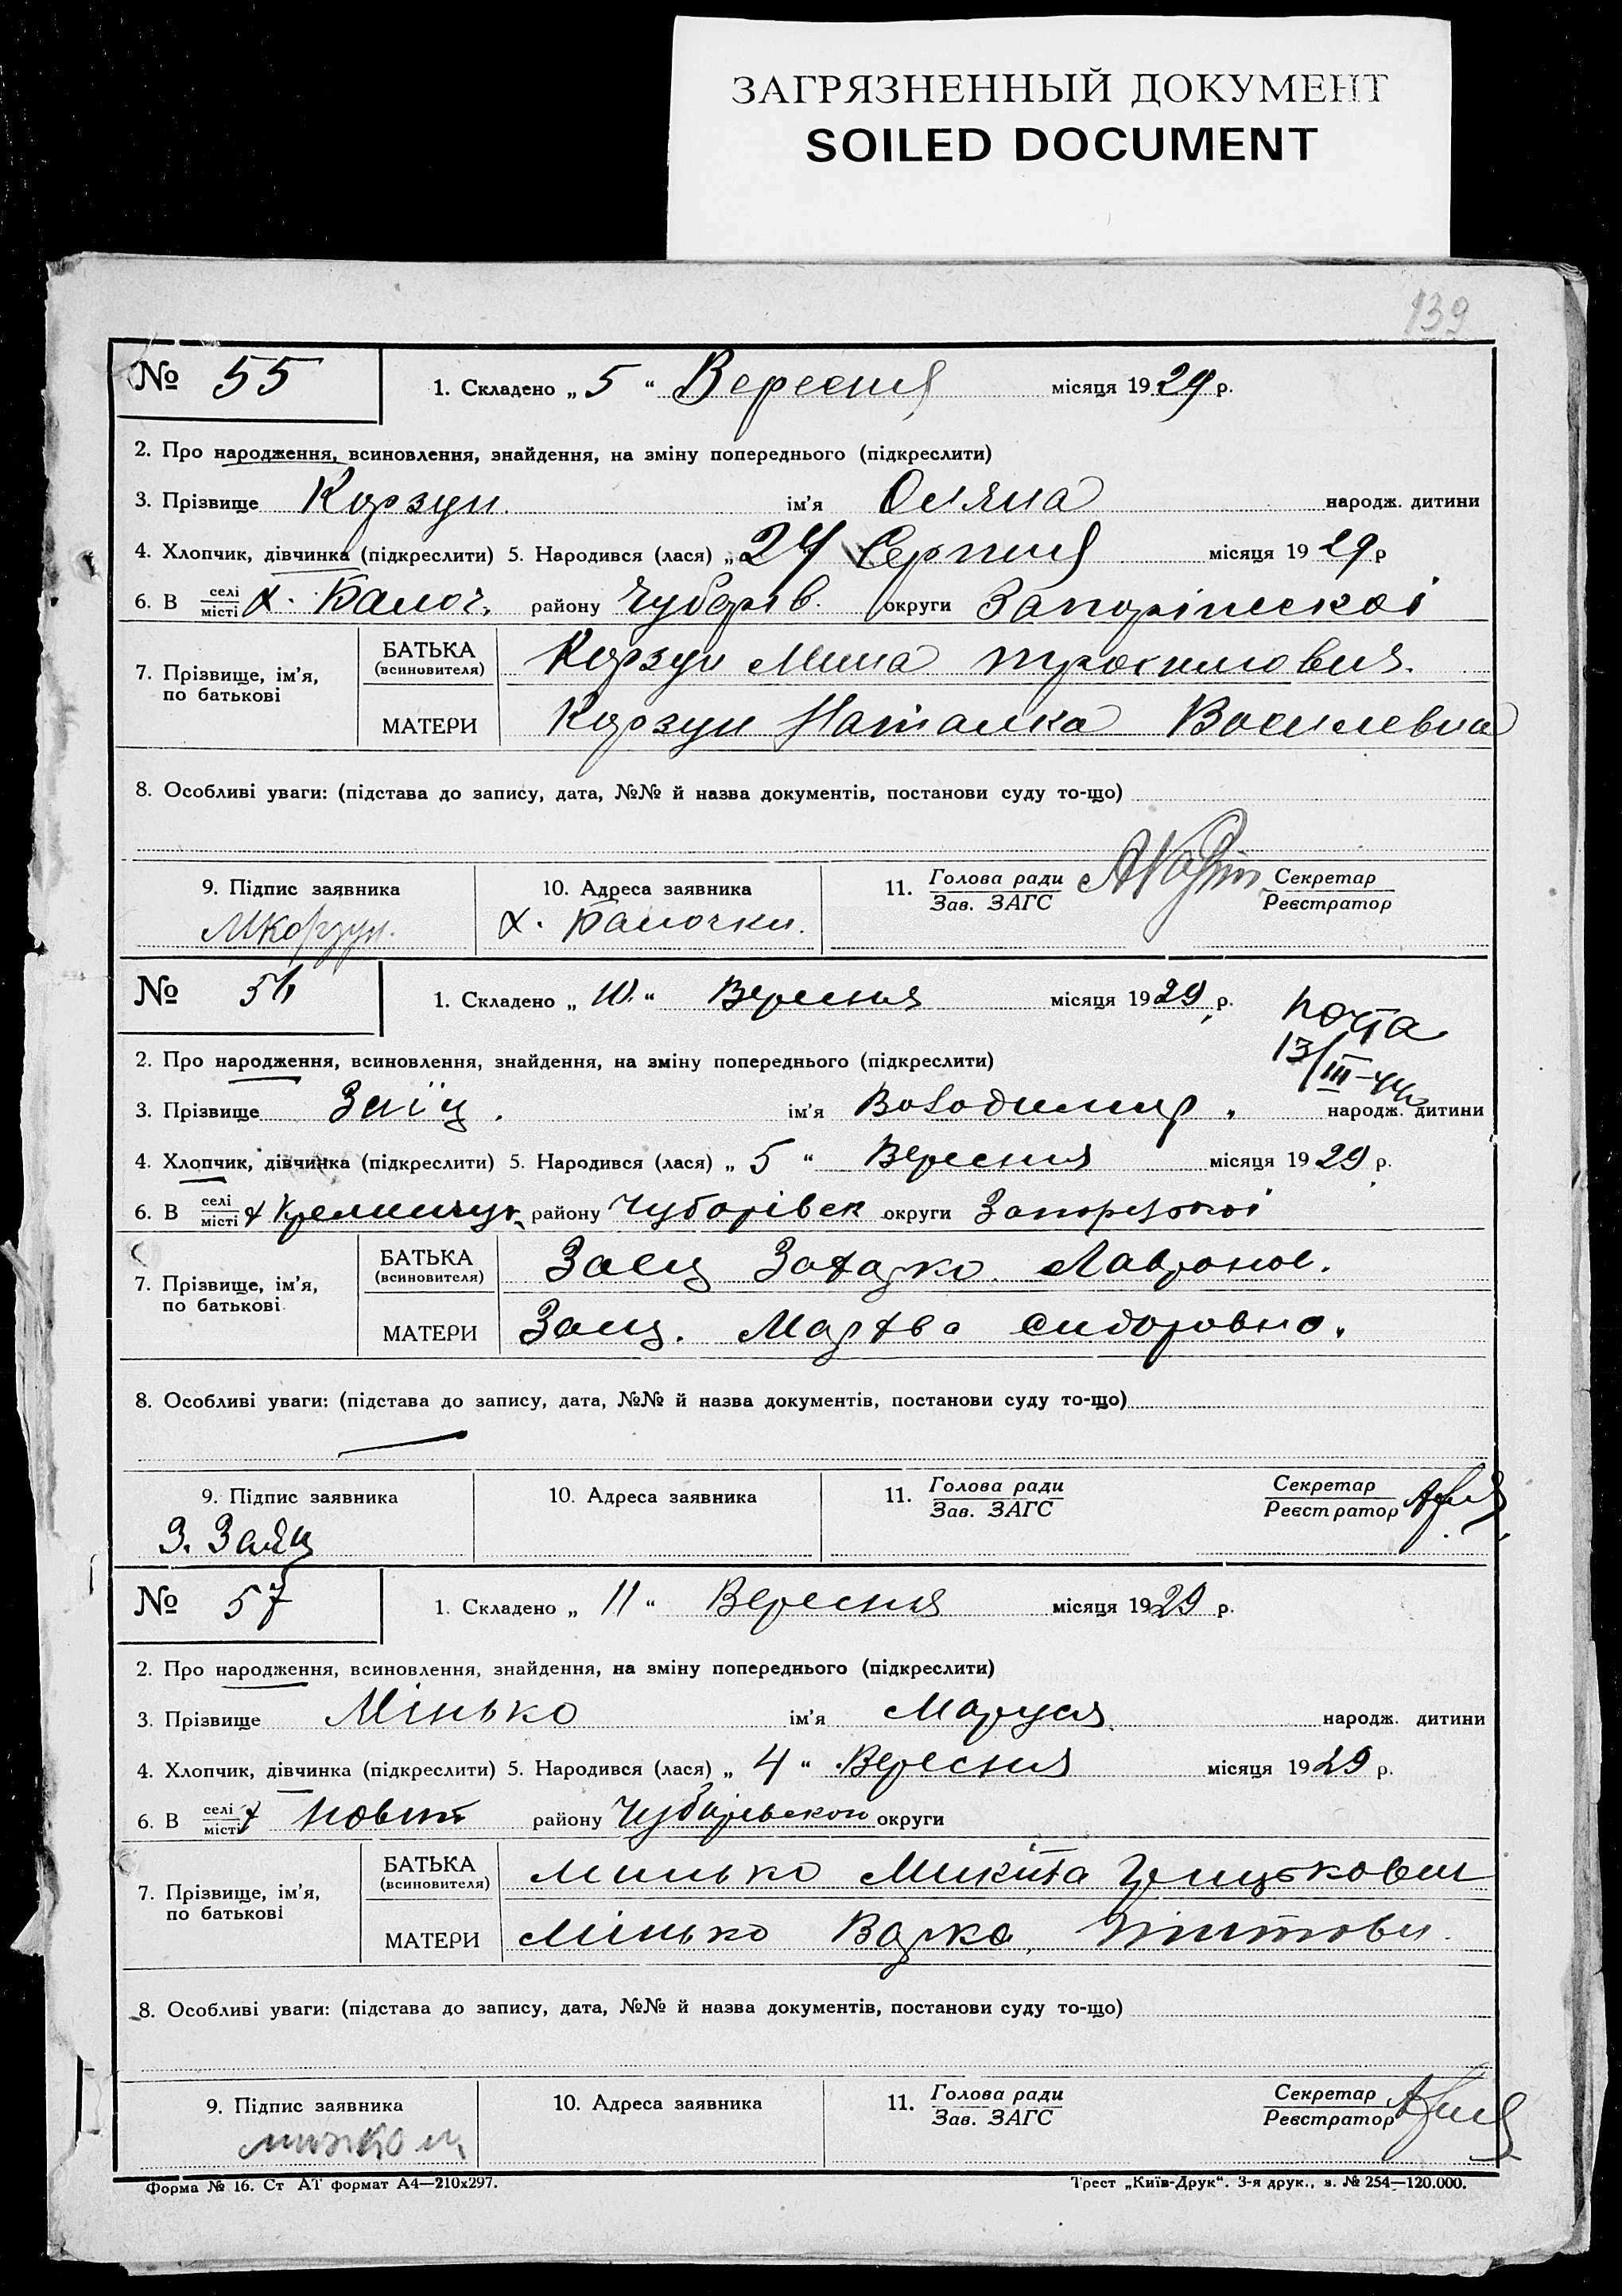 ЗАГРЯЗНЕННЫЙ ДОКУМЕНТ
SOILED DOCUMENT
139
№ 55 1. Складено „ 5 “ Вересня місяця 1929 р.
2. Про народження, всиновлення, знайдення, на зміну попереднього (підкреслити)
3. Прізвище Корзун. ім'я народж. дитини
4. Хлопчик, дівчинка (підкреслити) 5. Народився (лася) „ Серпня місяця 1929 р
6. В селі/місті х. Балоч. району Чубарів. округи Запоріжскої
7. Прізвище, ім'я, по батькові
БАТЬКА (всиновителя) Корзун Мина
МАТЕРИ Корзун Наталка Василевна
8. Особливі уваги: (підстава до запису, дата, №№ й назва документів, постанови суду то-що)
9. Підпис заявника 10. Адреса заявника 11. Голова ради Секретар
Зав. ЗАГС Реєстратор
МКорзун. х. Балочки.
№ 56 1. Складено „ 10 “ Вересня місяця 1929 р.
почта
13/III-44
2. Про народження, всиновлення, знайдення, на зміну попереднього (підкреслити)
3. Прізвище Заїц. ім'я Володимир. народж. дитини
4. Хлопчик, дівчинка (підкреслити) 5. Народився (лася) „ 5 “ Вересня місяця 1929 р.
6. В селі/місті х Кременчук району Чубарівск округи
7. Прізвище, ім'я, по батькові
БАТЬКА (всиновителя) Заец Захарко Лавронов.
МАТЕРИ Заец. Марфа Сидоровна.
8. Особливі уваги: (підстава до запису, дата, №№ й назва документів, постанови суду то-що)
9. Підпис заявника 10. Адреса заявника 11. Голова ради Секретар
Зав. ЗАГС Реєстратор
З. Заяц
№ 57 1. Складено „ 11 “ Вересня місяця 1929 р.
2. Про народження, всиновлення, знайдення, на зміну попереднього (підкреслити)
3. Прізвище Мінько ім'я Маруся народж. дитини
4. Хлопчик, дівчинка (підкреслити) 5. Народився (лася) „ 4 “ Вересня місяця 1929 р.
6. В селі/місті х району Чубарівского округи
7. Прізвище, ім'я, по батькові
БАТЬКА (всиновителя) Минько Микита Грицькович
МАТЕРИ Мінько Варка Титовн.
8. Особливі уваги: (підстава до запису, дата, №№ й назва документів, постанови суду то-що)
9. Підпис заявника 10. Адреса заявника 11. Голова ради Секретар
Зав. ЗАГС Реєстратор
Форма № 16. Ст АТ формат А4—210х297. Трест „Київ-Друк“. 3-я друк., з. № 254—120.000.